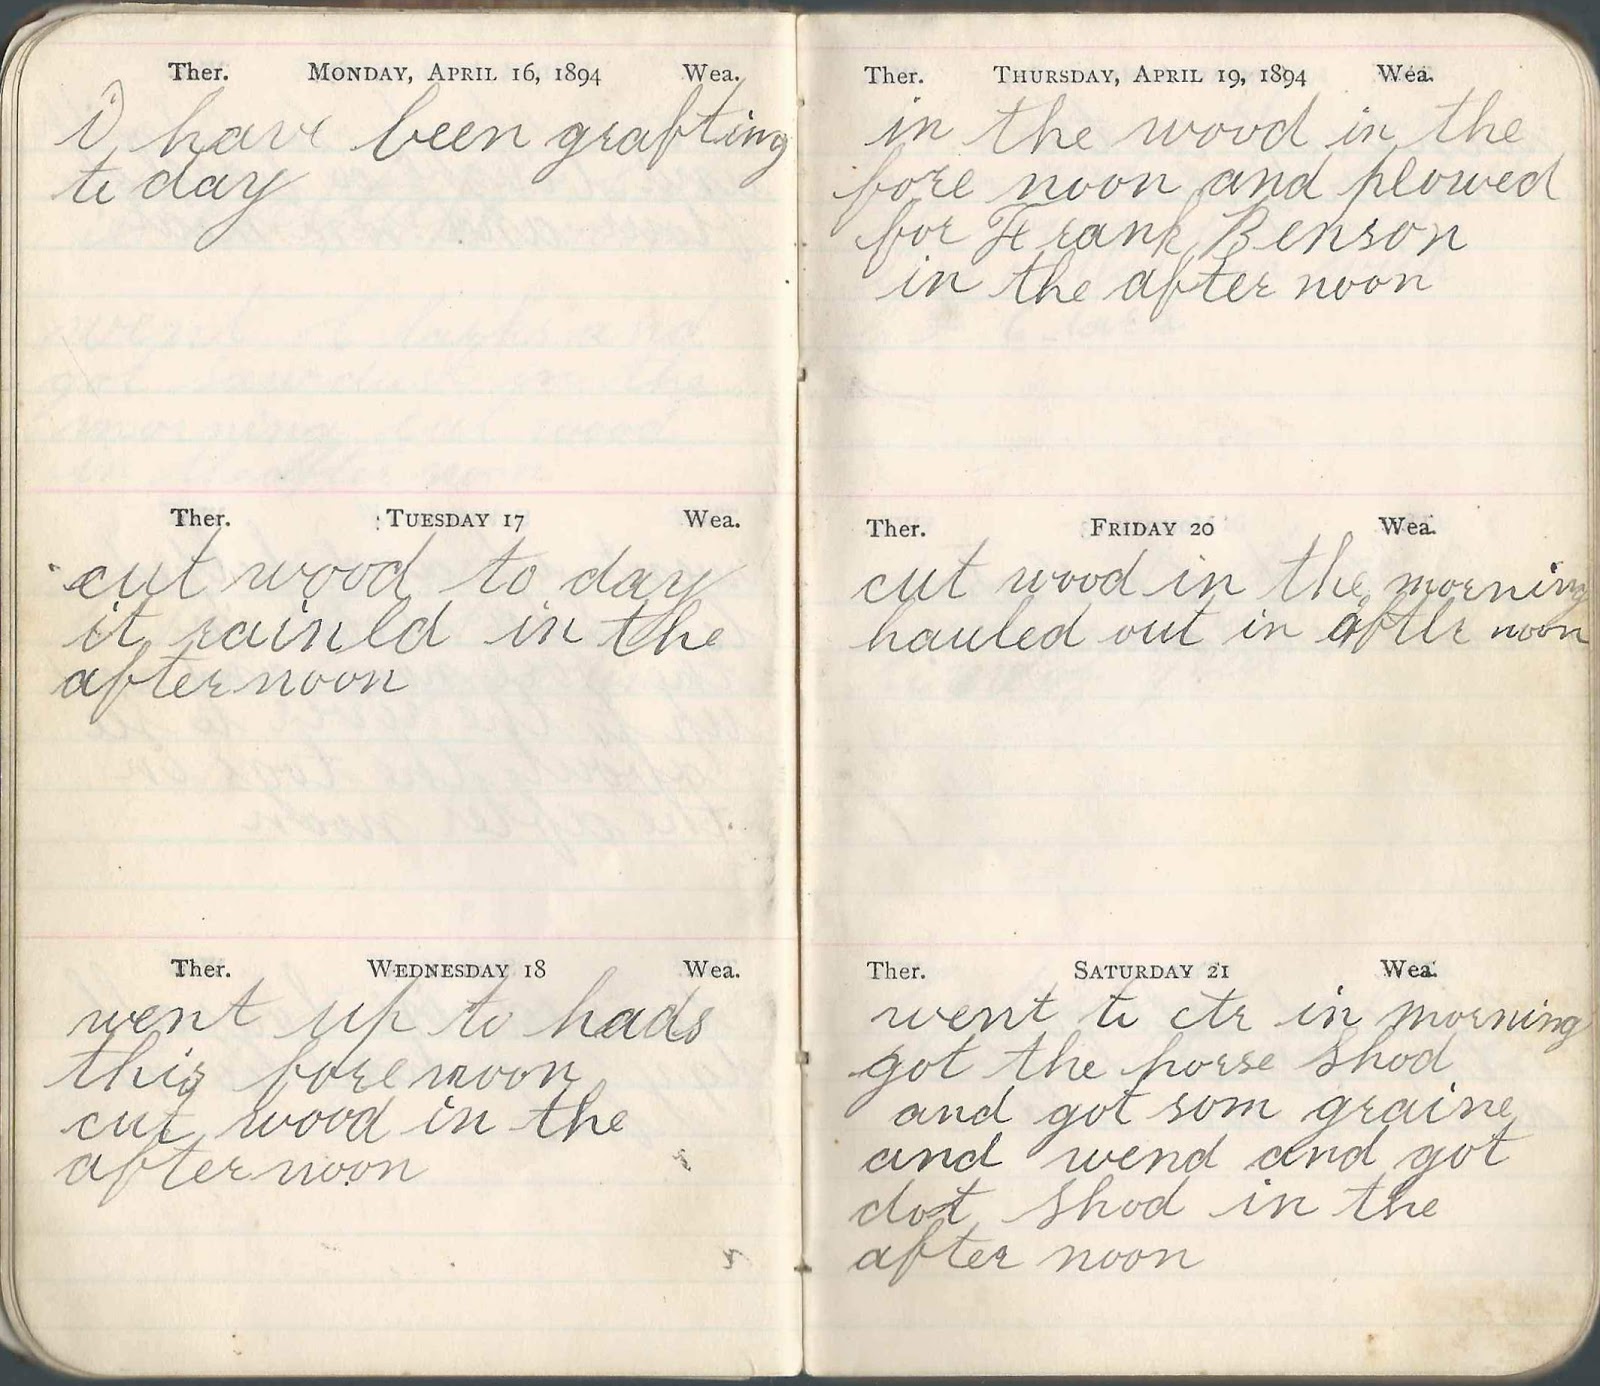 Ther. MONDAY, APRIL 16, 1894 Wea.
i have been grafting
to day
Ther. TUESDAY 17 Wea.
cut wood to day
it rained in the
after noon
Ther. WEDNESDAY 18 Wea.
went up to hads
this fore noon
cut wood in the
after noon
Ther. THURSDAY, APRIL 19, 1894 Wea.
in the wood in the
fore noon and plowed
for Frank Benson
in the after noon
Ther. FRIDAY 20 Wea.
cut wood in the morning
hauled out in after noon
Ther. SATURDAY 21 Wea.
went to ctr in morning
got the horse shod
and got som graine
and wend and got
dot shod in the
after noon